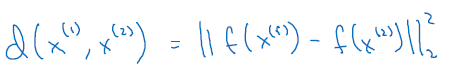 d(x^{(1)}, x^{(2)}) = || f(x^{(1)}) - f(x^{(2)}) ||_2^2